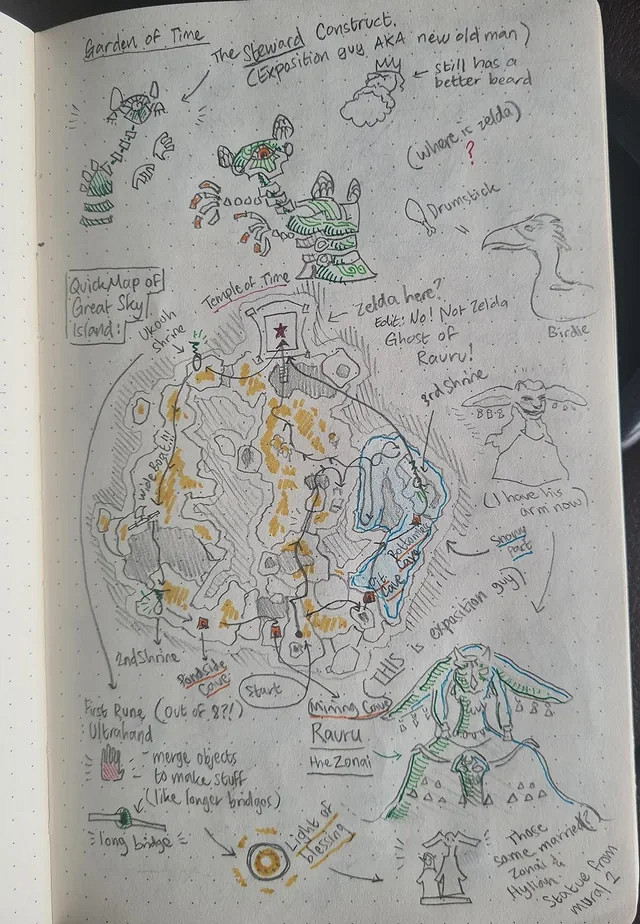 Garden of Time
The Steward Construct.
(Exposition guy AKA new old man)
still has a
better beard
(where is zelda)
?
Drumstick
Birdie
Quick Map of
Great Sky
Island:
Temple of Time
Ukooh
Shrine
Zelda here?
Edit: No! Not Zelda
Ghost of
Rauru!
3rd Shrine
(I have his
arm now)
wide Boat!!!
Snowy
Part
Bottomless
Cave
Pit
Cave
2nd Shrine
Pondside
Cave
Start
Mining Cave
THIS is exposition guy).
Rauru
the Zonai
First Rune (out of 8?!)
Ultrahand
- merge objects
to make stuff
(like longer bridges)
long bridge
Light of
blessing
Those
same married(?)
Zonai &
Hylian
Statue from
mural 2